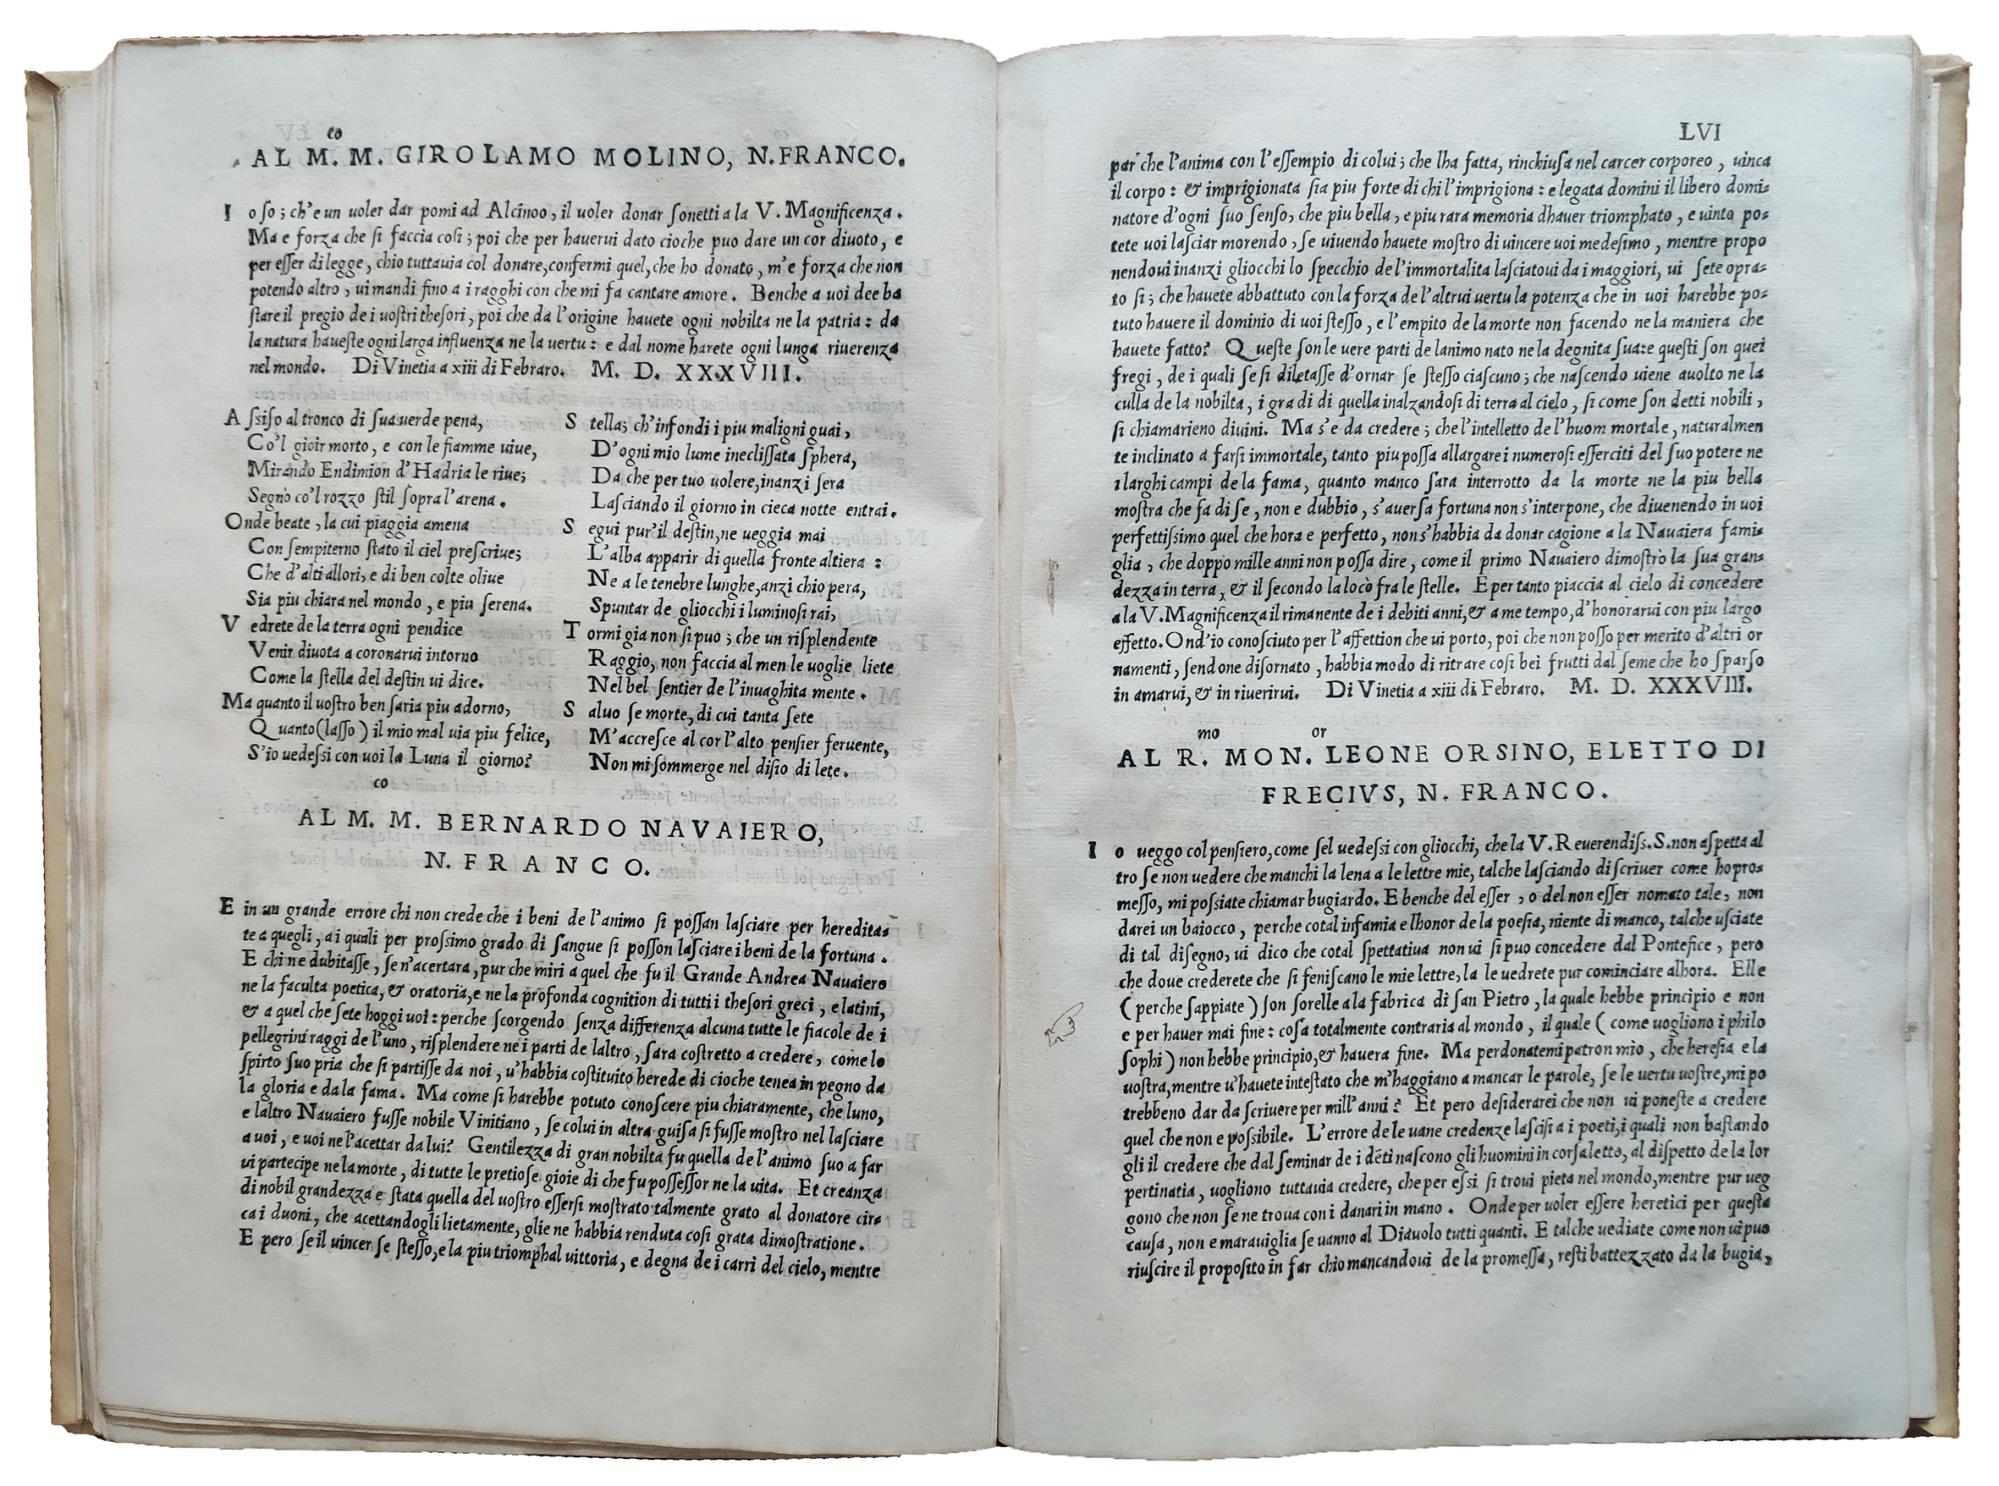 AL M.co M. GIROLAMO MOLINO, N. FRANCO.
Io so; ch'e un uoler dar pomi ad Alcinoo, il uoler donar sonetti a la V. Magnificenza.
Ma e forza che si faccia cosi; poi che per hauerui dato cioche puo dare un cor diuoto, e
per esser di legge, chio tuttauia col donare, confermi quel, che ho donato, m'e forza che non
potendo altro, ui mandi fino a i ragghi con che mi fa cantare amore. Benche a uoi dee ba
stare il pregio de i uostri thesori, poi che da l'origine hauete ogni nobilta ne la patria: da
la natura haueste ogni larga influenza ne la uertu: e dal nome harete ogni lunga riuerenza
nel mondo. Di Vinetia a xiii di Febraro. M. D. XXXVIII.
Assiso al tronco di sua uerde pena,
Co'l gioir morto, e con le fiamme uiue,
Mirando Endimion d'Hadria le riue;
Segnò co'l rozzo stil sopra l'arena.
Onde beate, la cui piaggia amena
Con sempiterno stato il ciel prescriue;
Che d'alti allori, e di ben colte oliue
Sia piu chiara nel mondo, e piu serena.
Vedrete de la terra ogni pendice
Venir diuota a coronarui intorno
Come la stella del destin ui dice.
Ma quanto il uostro ben saria piu adorno,
Quanto (lasso) il mio mal uia piu felice,
S'io uedessi con uoi la Luna il giorno?
Stella; ch'infondi i piu maligni guai,
D'ogni mio lume ineclissata sphera,
Da che per tuo uolere, inanzi sera
Lasciando il giorno in cieca notte entrai.
Segui pur'il destin, ne ueggia mai
L'alba apparir di quella fronte altiera:
Ne a le tenebre lunghe, anzi chio pera,
Spuntar de gliocchi i luminosi rai,
Tormi gia non si puo; che un risplendente
Raggio, non faccia al men le uoglie liete
Nel bel sentier de l'inuaghita mente.
Saluo se morte, di cui tanta sete
M'accresce al cor l'alto pensier feruente,
Non mi sommerge nel disio di lete.
AL M.co M. BERNARDO NAVAIERO,
N. FRANCO.
E in un grande errore chi non crede che i beni de l'animo si possan lasciare per heredita=
te a quegli, a i quali per prossimo grado di sangue si posson lasciare i beni de la fortuna.
E chi ne dubitasse, se n'acertara, pur che miri a quel che fu il Grande Andrea Nauaiero
ne la faculta poetica, & oratoria, e ne la profonda cognition di tutti i thesori greci, e latini,
& a quel che sete hoggi uoi: perche scorgendo senza differenza alcuna tutte le fiacole de i
pellegrini raggi de l'uno, risplendere ne i parti de laltro, sara costretto a credere, come lo
spirto suo pria che si partisse da noi, u'habbia costituito herede di cioche tenea in pegno da
la gloria e dala fama. Ma come si harebbe potuto conoscere piu chiaramente, che luno,
e laltro Nauaiero fusse nobile Vinitiano, se colui in altra guisa si fusse mostro nel lasciare
a uoi, e uoi ne l'acettar da lui? Gentilezza di gran nobilta fu quella de l'animo suo a far
ui partecipe ne la morte, di tutte le pretiose gioie di che fu possessor ne la uita. Et creanza
di nobil grandezza e stata quella del uostro essersi mostrato talmente grato al donatore cir=
ca i duoni, che acettandogli lietamente, glie ne habbia renduta cosi grata dimostratione.
E pero se il uincer se stesso, e la piu triomphal uittoria, e degna de i carri del cielo, mentre
LVI
par che l'anima con l'essempio di colui; che lha fatta, rinchiusa nel carcer corporeo, uinca
il corpo: & imprigionata sia piu forte di chi l'imprigiona: e legata domini il libero domi=
natore d'ogni suo senso, che piu bella, e piu rara memoria dhauer triomphato, e uinto po=
tete uoi lasciar morendo, se uiuendo hauete mostro di uincere uoi medesimo, mentre propo
nendoui inanzi gliocchi lo specchio de l'immortalita lasciatoui da i maggiori, ui sete opra=
to si; che hauete abbattuto con la forza de l'altrui uertu la potenza che in uoi harebbe po=
tuto hauere il dominio di uoi stesso, e l'empito de la morte non facendo ne la maniera che
hauete fatto? Queste son le uere parti de lanimo nato ne la degnita sua: e questi son quei
fregi, de i quali se si diletasse d'ornar se stesso ciascuno; che nascendo uiene auolto ne la
culla de la nobilta, i gradi di quella inalzandosi di terra al cielo, si come son detti nobili,
si chiamarieno diuini. Ma s'e da credere; che l'intelletto de l'huom mortale, naturalmen
te inclinato a farsi immortale, tanto piu possa allargare i numerosi esserciti del suo potere ne
i larghi campi de la fama, quanto manco sara interrotto da la morte ne la piu bella
mostra che fa di se, non e dubbio, s'auersa fortuna non s'interpone, che diuenendo in uoi
perfettissimo quel che hora e perfetto, non s'habbia da donar cagione a la Nauaiera fami=
glia, che doppo mille anni non possa dire, come il primo Nauaiero dimostrò la sua gran=
dezza in terra, & il secondo la locò fra le stelle. E per tanto piaccia al cielo di concedere
a la V. Magnificenza il rimanente de i debiti anni, & a me tempo, d'honorarui con piu largo
effetto. Ond'io conosciuto per l'affettion che ui porto, poi che non posso per merito d'altri or
namenti, sendone disornato, habbia modo di ritrare cosi bei frutti dal seme che ho sparso
in amarui, & in riuerirui. Di Vinetia a xiii di Febraro. M. D. XXXVIII.
AL R.mo MON.or LEONE ORSINO, ELETTO DI
FRECIVS, N. FRANCO.
Io ueggo col pensiero, come sel uedessi con gliocchi, che la V. Reuerendiss. S. non aspetta al
tro se non uedere che manchi la lena a le lettre mie, talche lasciando di scriuer come ho pro=
messo, mi possiate chiamar bugiardo. E benche del esser, o del non esser nomato tale, non
darei un baiocco, perche cotal infamia e lhonor de la poesia, niente di manco, talche usciate
di tal disegno, ui dico che cotal spettatiua non ui si puo concedere dal Pontefice, pero
che doue crederete che si feniscano le mie lettre, la le uedrete pur cominciare alhora. Elle
(perche sappiate) son sorelle a la fabrica di san Pietro, la quale hebbe principio e non
e per hauer mai fine: cosa totalmente contraria al mondo, il quale (come uogliono i philo
sophi) non hebbe principio, & hauera fine. Ma perdonatemi patron mio, che heresia e la
uostra, mentre u'hauete intestato che m'haggiano a mancar le parole, se le uertu uostre, mi po
trebbeno dar da scriuere per mill'anni? Et pero desiderarei che non ui poneste a credere
quel che non e possibile. L'errore de le uane credenze lascisi a i poeti, i quali non bastando
gli il credere che dal seminar de i dēti nascono gli huomini in corsaletto, al dispetto de la lor
pertinatia, uogliono tuttauia credere, che per essi si troui pieta nel mondo, mentre pur ueg
gono che non se ne troua con i danari in mano. Onde per uoler essere heretici per questa
causa, non e marauiglia se uanno al Diauolo tutti quanti. E talche uediate come non ui puo
riuscire il proposito in far chio mancandoui de la promessa, resti battezzato da la bugia,